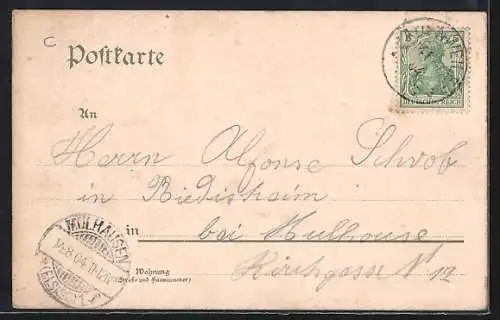 C
Postkarte
DEUTSCHES REICH
An
Herrn Alfonse Schwob
in Riedisheim
in bei Mulhouse
MÜLHAUSEN
14.8.04.11-12V
Wohnung
(Straße und Hausnummer)
Kirchgasse N 12